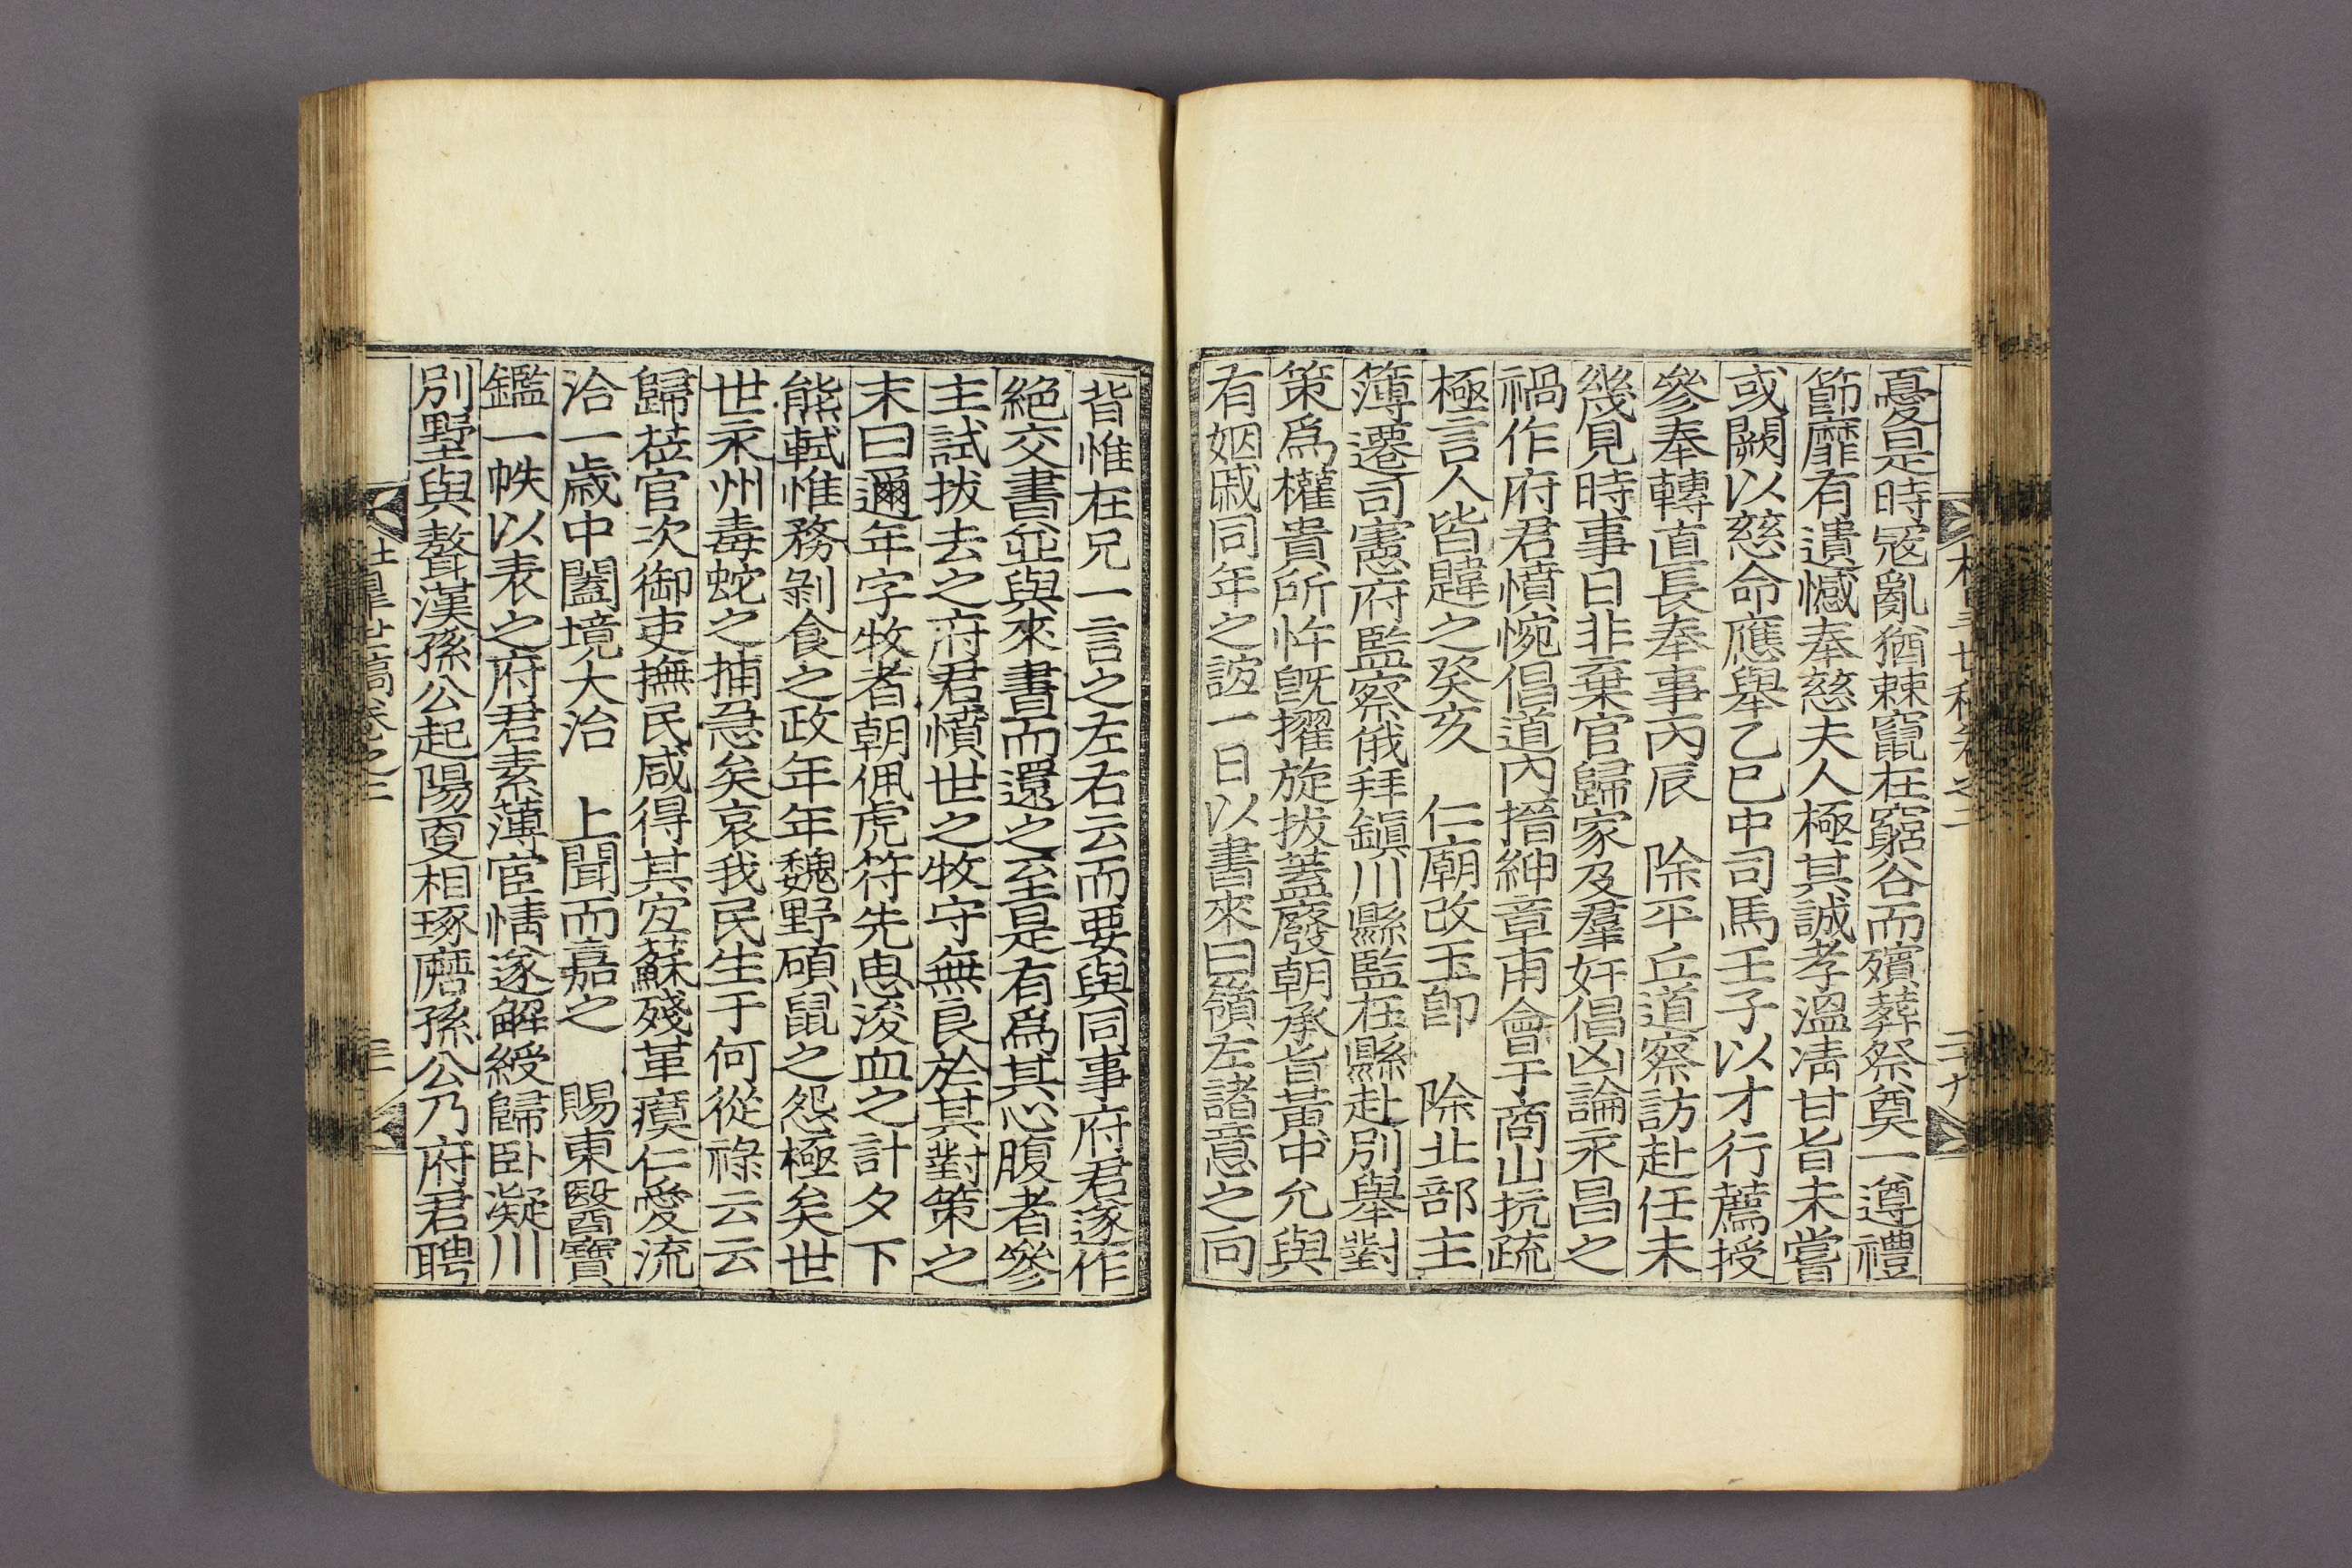 憂是時寇亂猶棘竄在窮谷而殯葬祭奠一遵禮
節靡有遺憾奉慈夫人極其誠孝溫凊甘旨未嘗
或闕以慈命應舉乙巳中司馬壬子以才行薦授
參奉轉直長奉事丙辰 除平丘道察訪赴任未
幾見時事日非棄官歸家及羣奸倡凶論永昌之
禍作府君憤惋倡道內搢紳章甫會于商山抗疏
極言人皆韙之癸亥 仁廟改玉卽 除北部主
簿遷司憲府監察俄拜鎭川縣監在縣赴別擧對
策爲權貴所忤旣擢旋拔蓋廢朝承旨黃中允與
有姻戚同年之誼一日以書來曰嶺左諸意之向
背惟在兄一言之左右云而要與同事府君遂作
絶交書並與來書而還之至是有爲其心腹者參
主試拔去之府君憤世之牧守無良於其對策之
末曰邇年字牧者朝佩虎符先思浚血之計夕下
熊軾惟務剝食之政年年魏野碩鼠之怨極矣世
世永州毒蛇之捕急矣哀我民生于何從祿云云
歸莅官次御吏撫民咸得其宜蘇殘革瘼仁愛流
洽一歲中闔境大治 上聞而嘉之 賜東醫寶
鑑一帙以表之府君素薄宦情遂解綬歸臥凝川
別墅與聱漢孫公起陽更相琢磨孫公乃府君聘